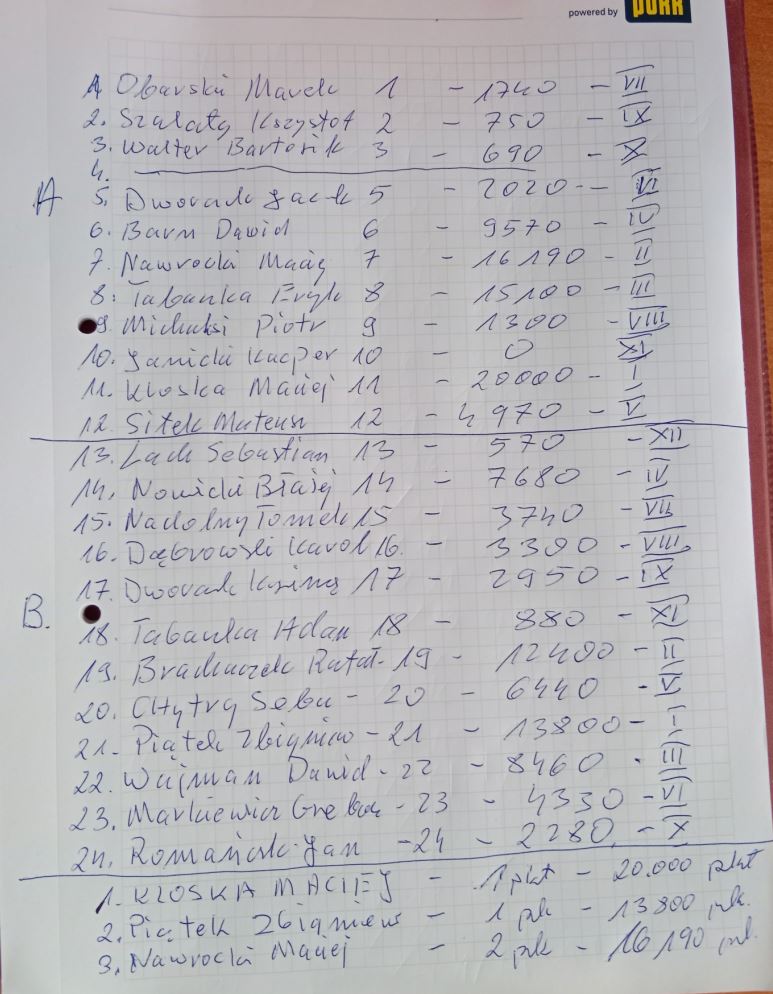 powered by
1. Obarski Marek 1 - 1740 - VII
2. Szałaty Krzysztof 2 - 750 - IX
3. Walter Bartosik 3 - 690 - X
4.
A 5. Dworak Jacek 5 - 2020 - VI
6. Barn Dawid 6 - 9570 - IV
7. Nawrocki Maciej 7 - 16190 - II
8. Tabanka Eryk 8 - 15100 - III
9. Michalski Piotr 9 - 1300 - VIII
10. Janicki Kacper 10 - 0 XI
11. Kloska Maciej 11 - 20000 - I
12. Sitek Mateusz 12 - 4970 - V
13. Lach Sebastian 13 - 570 - XII
14. Nowicki Błażej 14 - 7680 - IV
15. Nadolny Tomek 15 - 3740 - VII
16. Dąbrowski Karol 16. - 3390 - VIII
17. Dworak 17 - 2950 - IX
B. 18. Tabanka Adam 18 - 880 - XI
19. Rafał - 19 - 12400 - II
20. Chytry Seba - 20 - 6440 - V
21. Piątek Zbigniew - 21 - 13800 - I
22. Wujman Dawid - 22 - 8460 - III
23. Markiewicz - 23 - 4330 - VI
24. Romańczk Jan - 24 - 2280 - X
1. KLOSKA MACIEJ - 1 pkt - 20.000 pkt
2. Piątek Zbigniew - 1 pk - 13800 pk.
3. Nawrocki Maciej - 2 pk - 16190 pk.